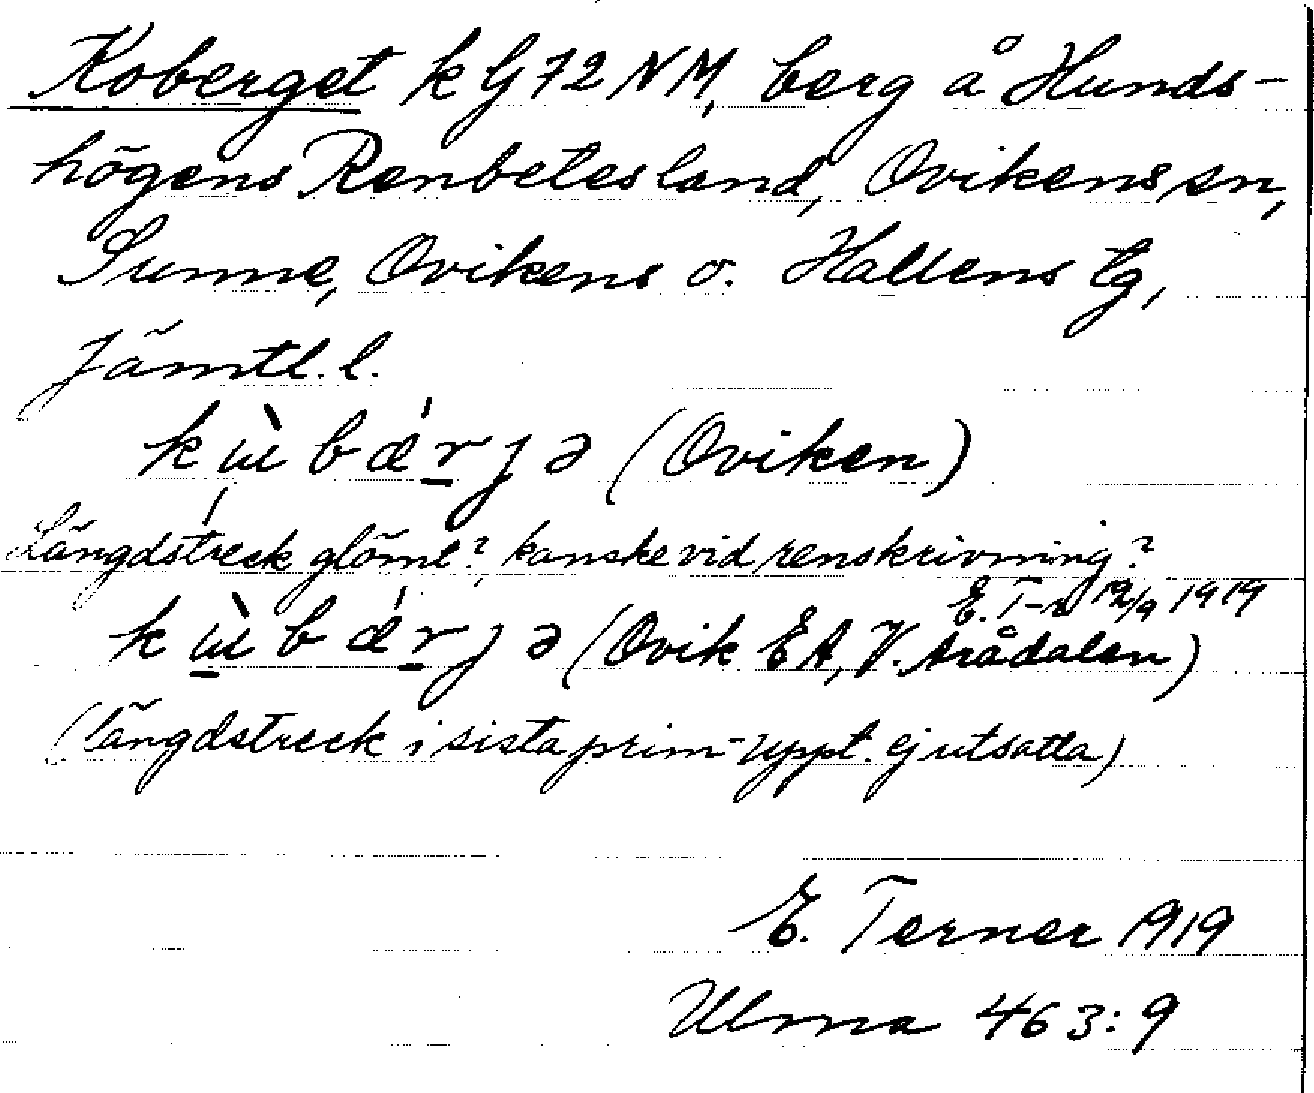 Koberget k G 72 NM, berg å Hunds-
högens Renbetesland, Ovikens sn,
Sunne, Ovikens o. Hallens tg,
Jämtl. l.
kɯ̀bǽrjə (Oviken)
Längdstreck glömt?, kanske vid renskrivning?
E. T-r 12/9 1919
kɯ̀bǽrjə (Ovik EA, V. Arådalen)
(längdstreck i sista prim-uppt. ej utsatta)
E. Terner 1919
Ulma 463:9